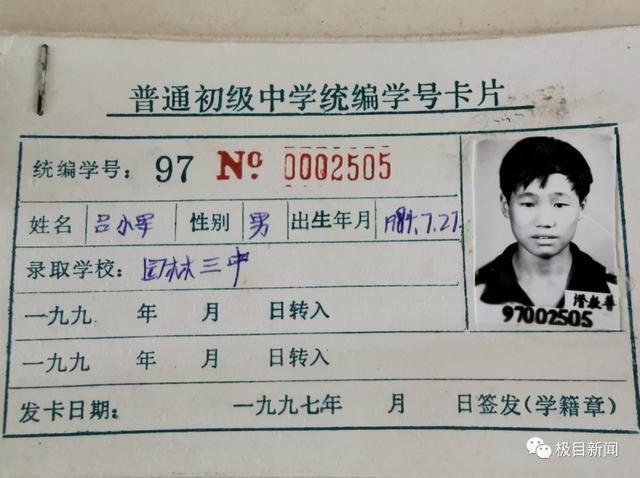 普通初级中学统编学号卡片
统编学号: 97 No 0002505
姓名 吕小军 性别 男 出生年月 1984.7.27.
录取学校: 园林三中
一九九 年 月 日转入
一九九 年 月 日转入
发卡日期: 一九九七年 月 日签发(学籍章)
潜教普
97002505
极目新闻